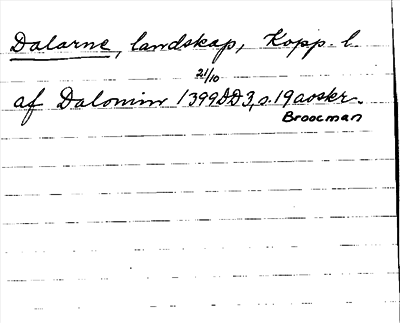 Dalarne, landskap, Kopp. l.
21/10
af Dalomin 1399 DD3, s. 19 aoskr.
Broocman